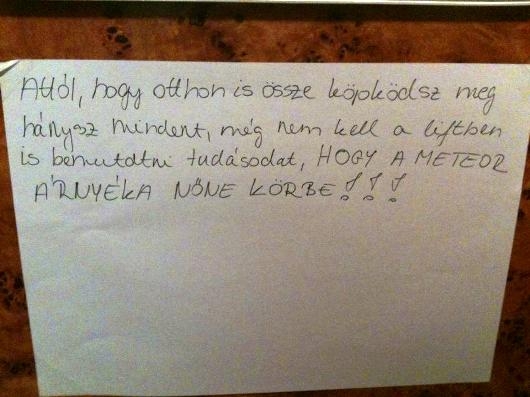 Attól, hogy otthon is össze köpködsz meg
hánysz mindent, még nem kell a liftben
is bemutatni tudásodat, HOGY A METEOR
ÁRNYÉKA NŐNE KÖRBE!!!